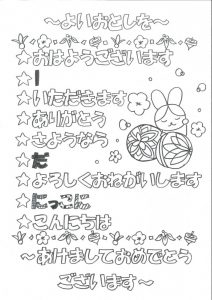 ～よいおとしを～
★おはようございます
★いただきます
★ありがとう
★さようなら
★だ
★よろしくおねがいします
★にっこに
★こんにちは
～あけましておめでとう
ございます～